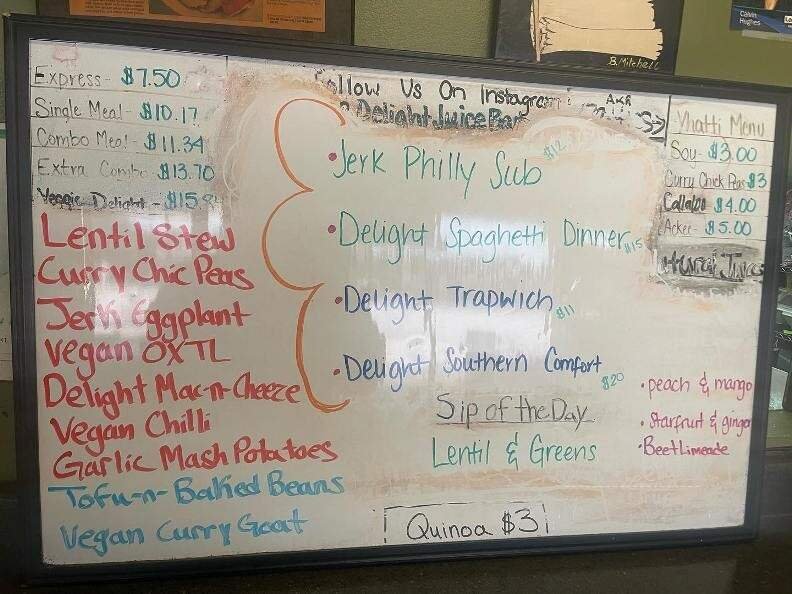 Calvin
Hughes
B. Mitchell
Express - $7.50
Single Meal - $10.17
Combo Meal - $11.34
Extra Combo - $13.70
Veggie Delight - $15.
Lentil Stew
Curry Chic Peas
Jerk Eggplant
Vegan OXTL
Delight Mac-n-Cheeze
Vegan Chilli
Garlic Mash Potatoes
Tofu-n-Baked Beans
Vegan Curry Goat
Follow Us On Instagram:
Delight Juice Bar
• Jerk Philly Sub $12
• Delight Spaghetti Dinner $15
• Delight Trapwich $11
• Delight Southern Comfort $20
Sip of the Day
Lentil & Greens
Quinoa $3
AKA
Phatti Menu
Soy - $3.00
Curry Chick Peas $3
Callaloo $4.00
Ackee - $5.00
• peach & mango
• Starfruit & ginger
• Beet Limeade